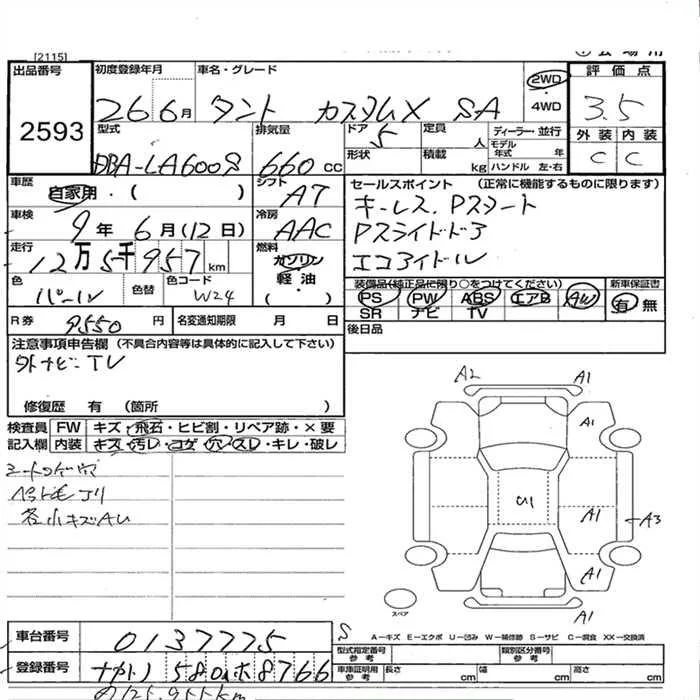 [2115]
出品番号 初度登録年月 車名・グレード 2WD 評価点
2593 26 6月 タント カスタムX SA ・4WD 3.5
型式 排気量 ドア 定員 ディーラー・並行 外装 内装
DBA-LA600S 660cc 5 人 モデル年式 年 C C
形状 積載 kg ハンドル 左・右
車歴 自家用・( ) シフト AT セールスポイント (正常に機能するものに限ります)
車検 9年 6月(12日) 冷房 AAC キーレス、Pスタート
走行 12万5千957km 燃料 ガソリン 軽油・( ) Pスライドドア
エコアイドル
色 パール 色替 色コード W24 装備品(純正品に限り○をつけてください) 新車保証書
PS PW ABS エアB AW 有 無
SR ナビ TV
R券 9550円 名変通知期限 月 日 後日品
注意事項申告欄 (不具合内容等は具体的に記入して下さい)
外ナビ-TV
修復歴 有 (箇所 )
検査員 FW キズ・飛石・ヒビ割・リペア跡・×要
記入欄 内装 キズ・汚レ・コゲ・穴・スレ・キレ・破レ
シートコゲ穴
各小キズAU
A2 A1
A1
U1 A1 A3
A1
スペア A1
S
A-キズ E-エクボ U-凹み W-補修跡 S-サビ C-腐食 XX-交換済
車台番号 0137775 型式指定番号 参考 類別区分番号 参考
登録番号 580 ホ 8766 車庫証明用 参考 長さ cm 幅 cm 高さ cm
125,955km